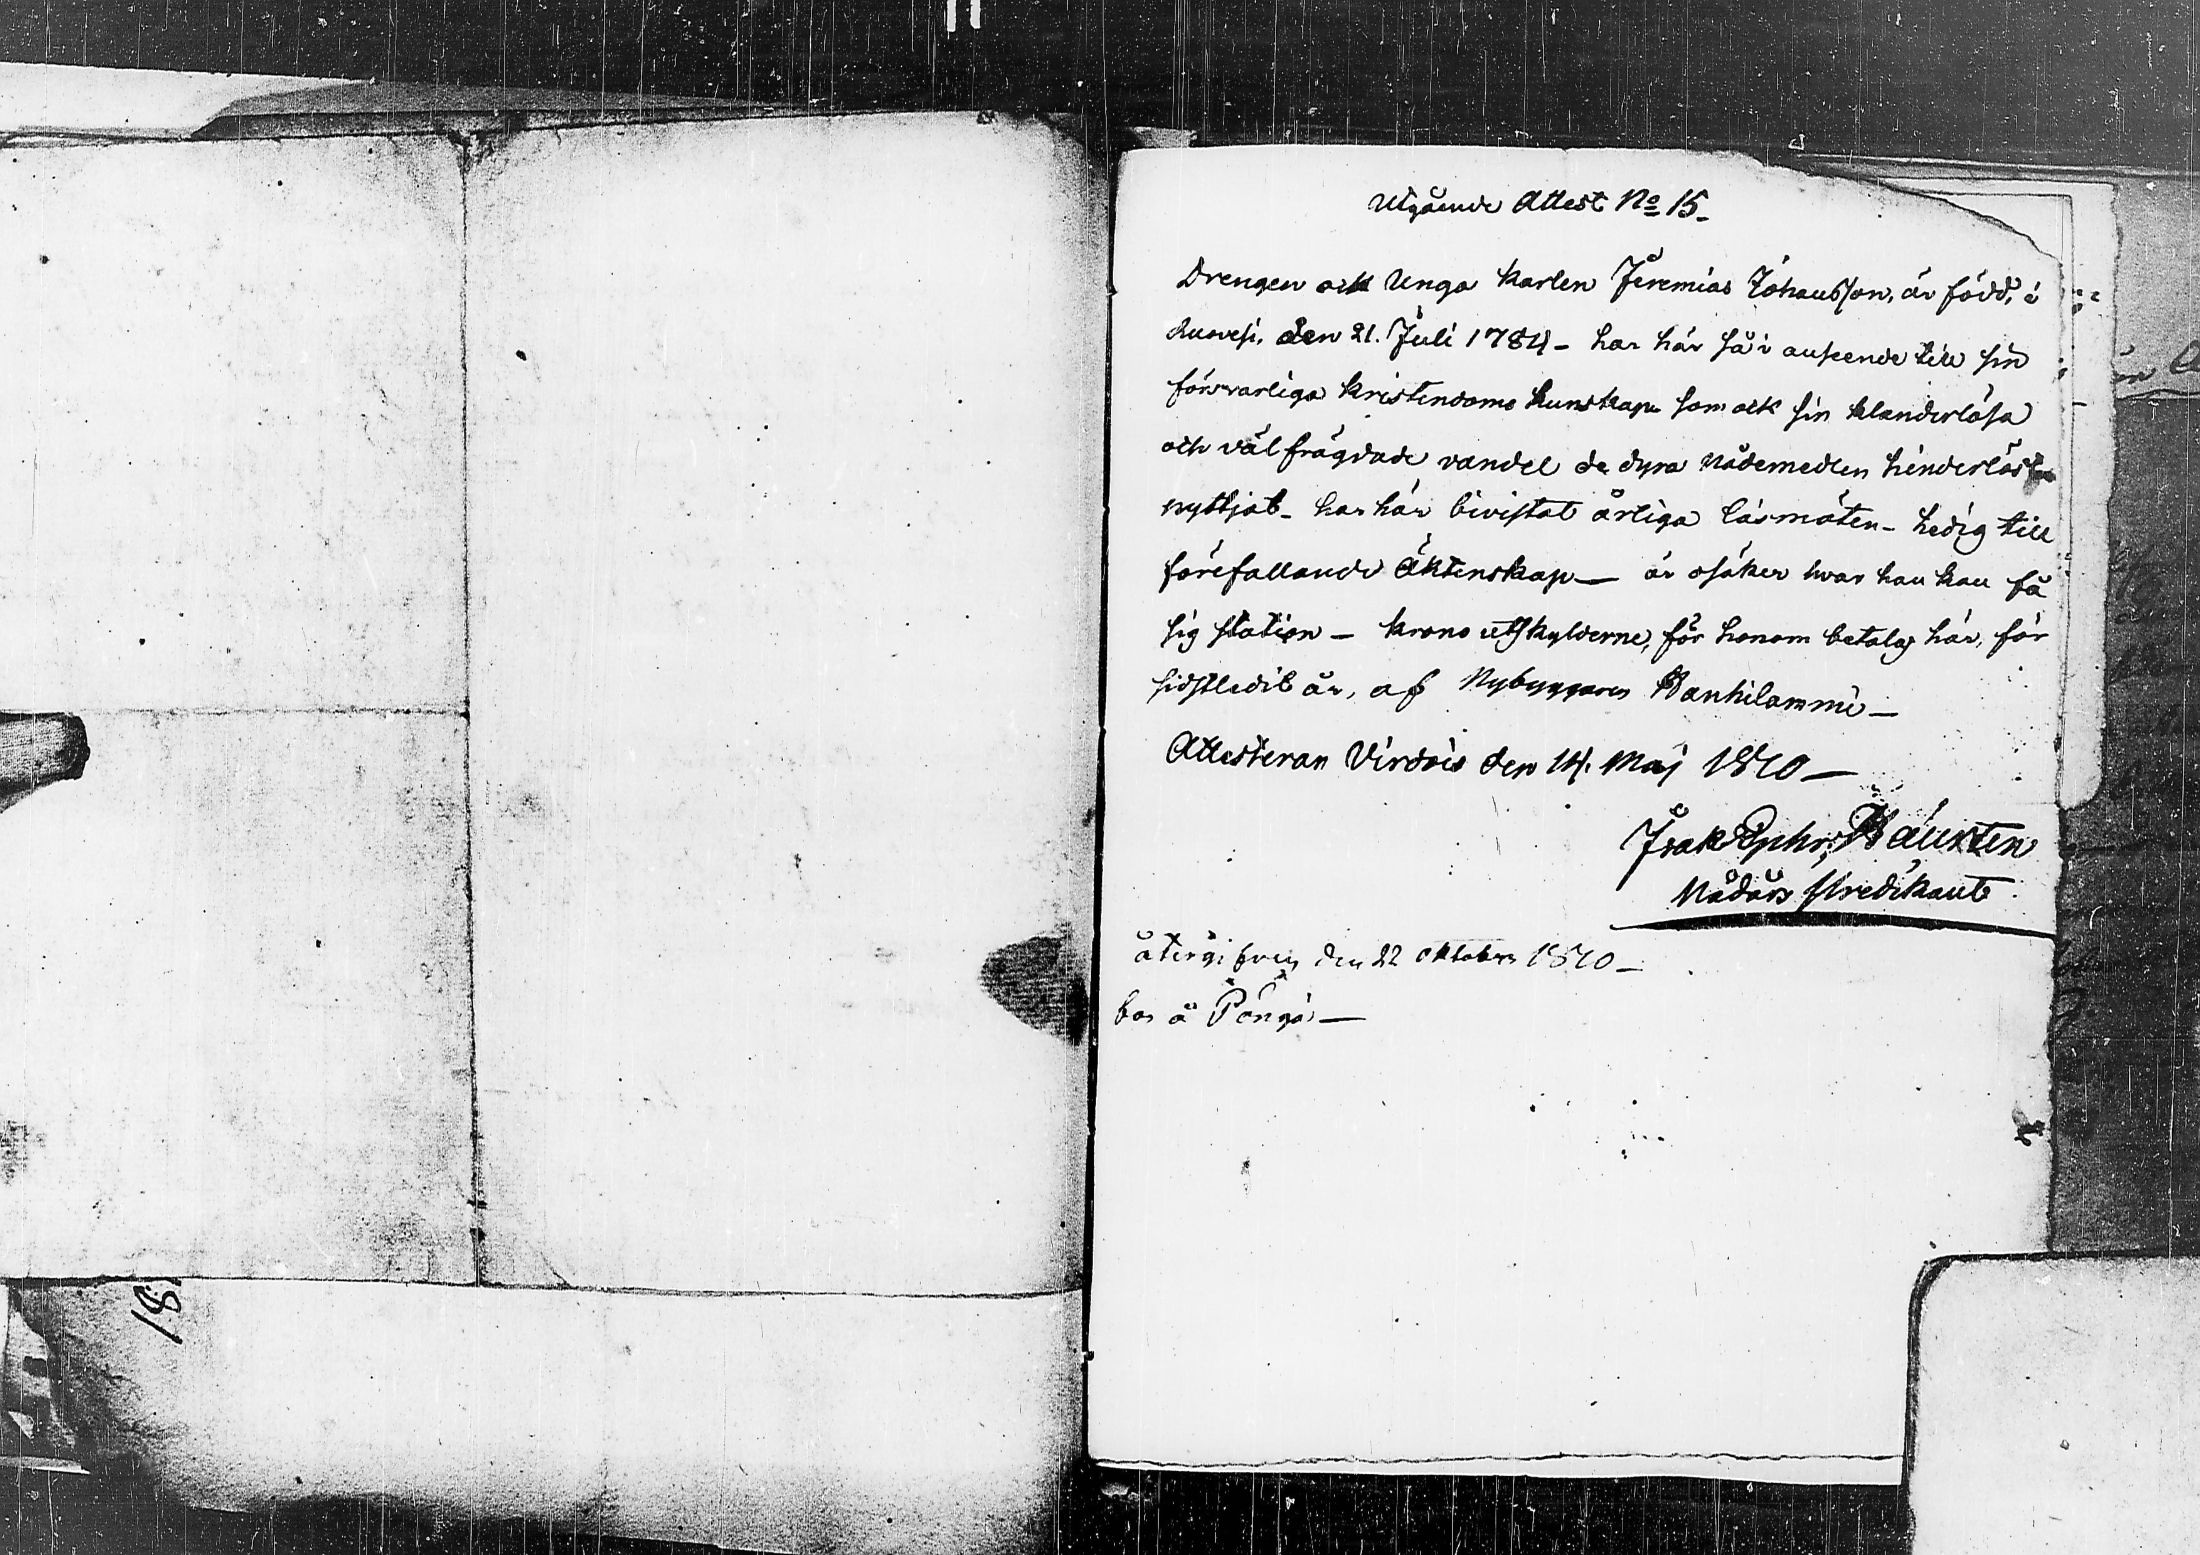 Utgående Attest No 15.
Drengen ock Unga karlen Jeremias Johansson, är född, i
Ruovesi, den 21. Juli 1784 - har här så i anseende till sin
försvarliga kristendoms kunskap som ock sin klanderlösa
och välfrägdade vandel de dyra nådemedlen hinderlöst
nyttjat - har här bivistat årliga läsmöten - ledig till
förefallande Äktenskap - är osäker hvar han kan få
sig station - krono utskylderne, för honom betalas här, för
sidstledit år, af Nybyggaren Hanhilammi -
Attesteran Virdois den 14. Maj 1810 -
Isak Ephr.
Nådårs Predikant
återgifven den 22 Oktober 1810 -
bor å
18